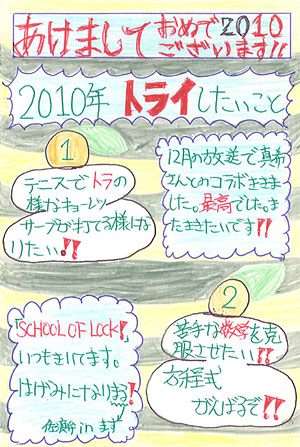 あけまして
おめで2010
ございます!!
2010年 トライしたいこと
1
テニスでトラの
様なキョーレツ
サーブが打てる様にな
りたい!!
12月の放送で真希
さんとのコラボききま
した。最高でした。ま
たききたいです!!
「SCHOOL OF LOCK!」
いつもきいてます。
はげみになりお!
2
苦手な数学を克
服させたい!!
方程式
がんばるで!!